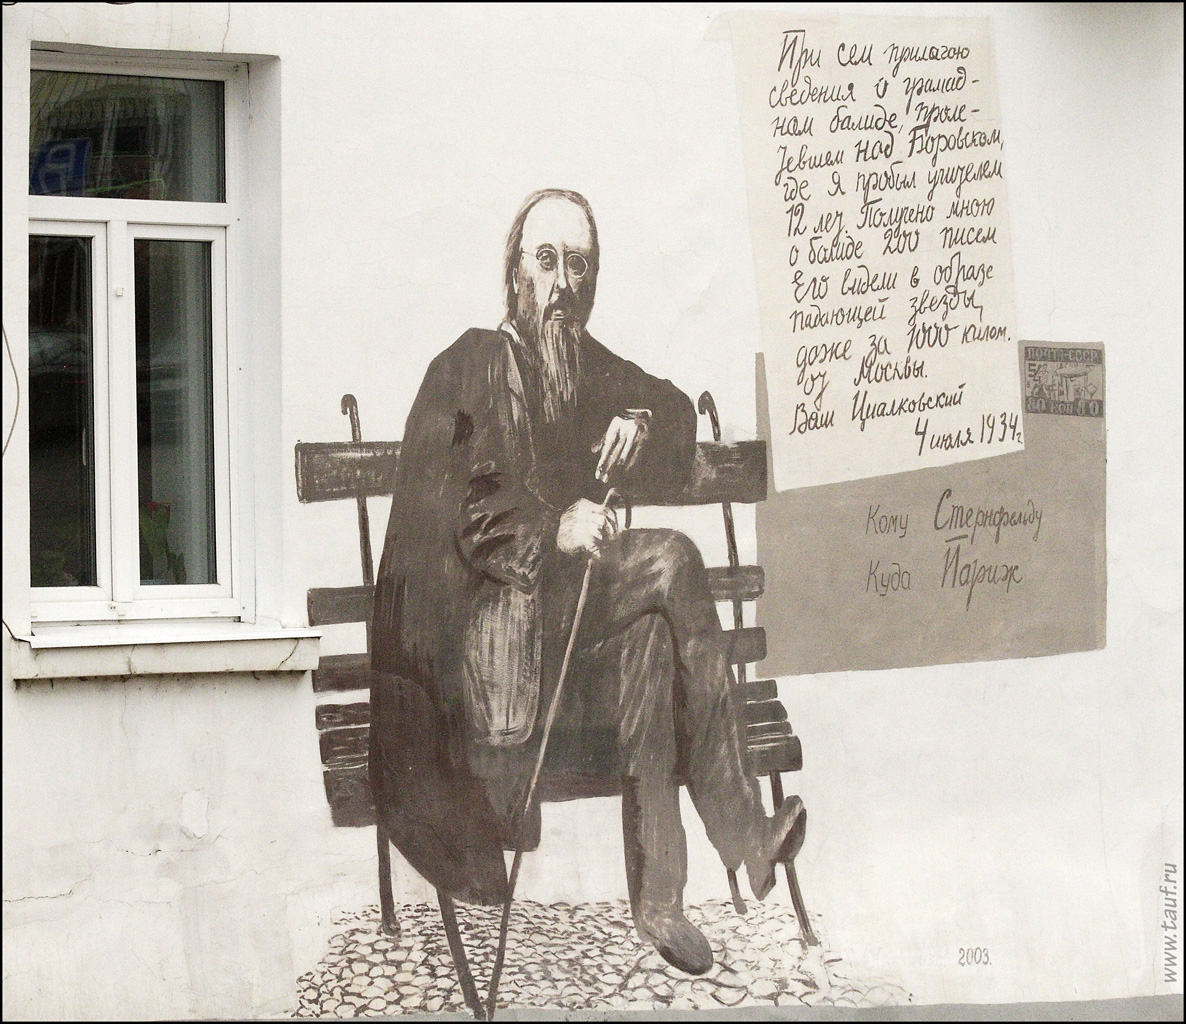 При сем прилагаю
сведения о громад-
ном болиде, проле-
тевшем над Боровском,
где я пробыл учителем
12 лет. Получено мною
о болиде 200 писем
Его видели в образе
падающей звезды,
даже за 1000 килом.
от Москвы.
Ваш Циалковский
4 июля 1934г.
ПОЧТА-СССР
10 КОП 10
Кому Стернфельду
Куда Париж
2003.
www.tauf.ru